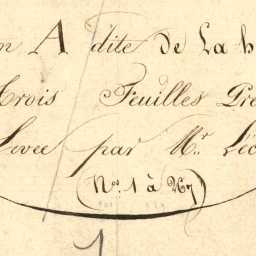 n A dite de La h
Trois Feuilles Pre
Levée par Mr. Léc
(Nos. 1 à 267)
1